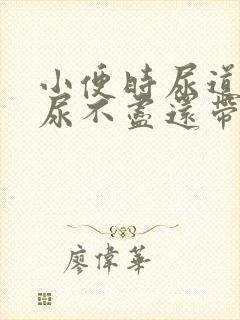 小便時尿道
尿不盡還帶
廖偉華